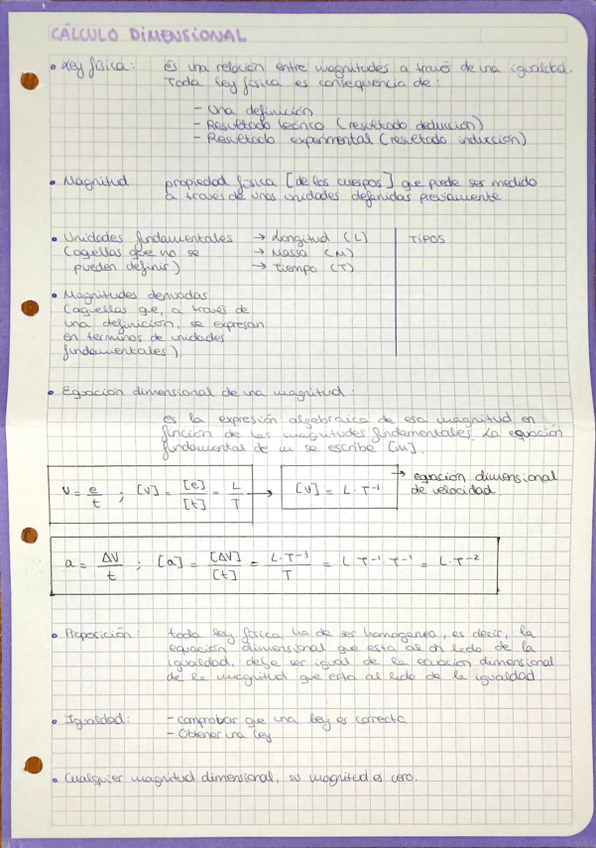 CÁLCULO DIMENSIONAL
• Ley física: Es una relación entre magnitudes a través de una igualdad.
Toda ley física es consequencia de:
- Una definición
- Resultado teórico (resultado deducción)
- Resultado experimental (resultado inducción)
• Magnitud propiedad física [de los cuerpos] que puede ser medido
a través de unas unidades definidas previamente
• Unidades fundamentales → Longitud (L) TIPOS
(aquellas que no se → Massa (M)
pueden definir) → Tiempo (T)
• Magnitudes derivadas
(aquellas que, a través de
una definición, se expresan
en términos de unidades
fundamentales)
• Equación dimensional de una magnitud:
es la expresión algebraica de esa magnitud en
función de las magnitudes fundamentales. La equación
fundamental de m se escribe [m].
v = e/t ; [v] = [e]/[t] = L/T → [v] = L·T⁻¹ → equación dimensional
de velocidad.
a = ΔV/t ; [a] = [ΔV]/[t] = L·T⁻¹/T = L·T⁻¹·T⁻¹ = L·T⁻²
• Proposición: toda ley física ha de ser homogenea, es decir, la
equación dimensional que esta al lado de la
igualdad, debe ser igual de la equación dimensional
de la magnitud que esta al lado de la igualdad
• Igualdad: - comprobar que una ley es correcta
- Obtener una ley
• Cualquier magnitud dimensional, su magnitud es cero.